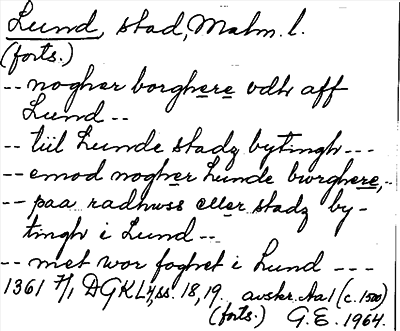 Lund, stad, Malm. l.
(forts.)
-- nogher borghere vdh aff
Lund --
-- tiil Lunde stadz bytingh ---
-- emod nogher Lunde bwrghere, --
-- paa radhwss eller stadz by-
tingh i Lund --
-- met wor foghet i Lund ---
1361 7/1 DGKL 4, ss. 18, 19. avskr. Aa1 (c. 1500)
(forts.) G.E. 1964.